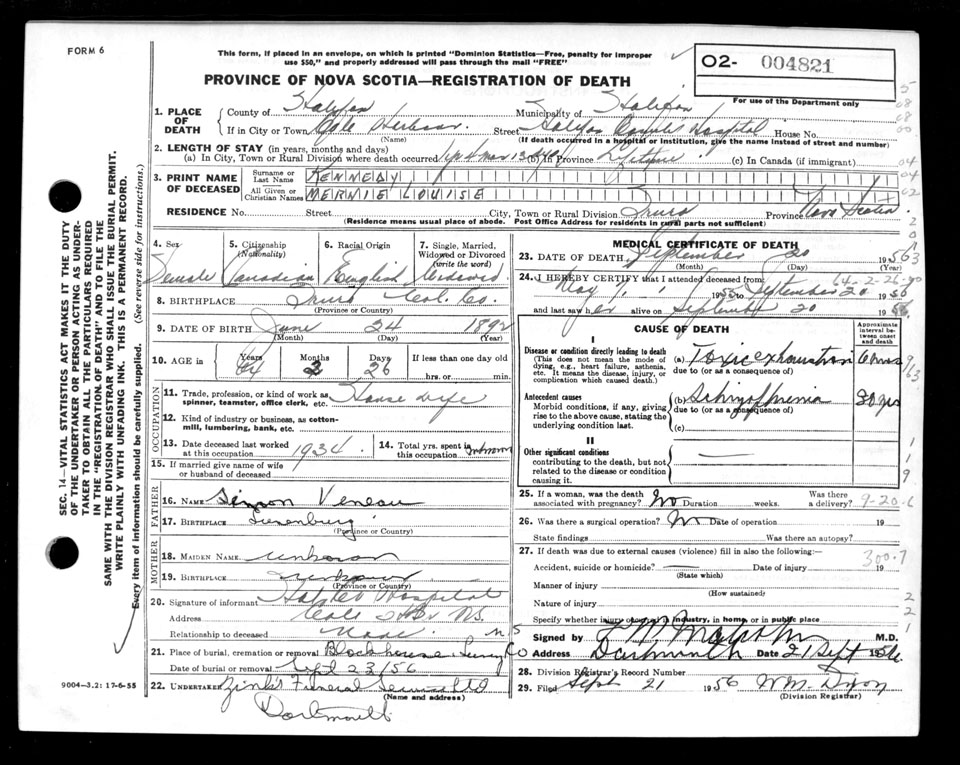 FORM 6
This form, if placed in an envelope, on which is printed "Dominion Statistics—Free, penalty for improper
use $50," and properly addressed will pass through the mail "FREE"
O2- 004821
For use of the Department only
PROVINCE OF NOVA SCOTIA—REGISTRATION OF DEATH
1. PLACE OF DEATH
County of Halifax Municipality of Halifax
If in City or Town Cole Harbour Street Halifax County Hospital House No.
(Name) (If death occurred in a hospital or institution, give the name instead of street and number)
2. LENGTH OF STAY (in years, months and days)
(a) In City, Town or Rural Division where death occurred (b) In Province Lifetime (c) In Canada (if immigrant)
3. PRINT NAME OF DECEASED
Surname or Last Name KENNEDY
All Given or Christian Names MERNIE LOUISE
RESIDENCE No. Street City, Town or Rural Division Truro Province Nova Scotia
(Residence means usual place of abode. Post Office Address for residents in rural parts not sufficient)
4. Sex Female
5. Citizenship (Nationality) Canadian
6. Racial Origin English
7. Single, Married, Widowed or Divorced (write the word) Widowed
8. BIRTHPLACE Truro Col. Co.
(Province or Country)
9. DATE OF BIRTH June 24 1892
(Month) (Day) (Year)
10. AGE in Years 64 Months 2 Days 26 If less than one day old
hrs. or min.
OCCUPATION
11. Trade, profession, or kind of work as spinner, teamster, office clerk, etc. House wife
12. Kind of industry or business, as cotton-mill, lumbering, bank, etc.
13. Date deceased last worked at this occupation 1934
14. Total yrs. spent in this occupation unknown
15. If married give name of wife or husband of deceased
FATHER
16. NAME Simon Veneau
17. BIRTHPLACE Lunenburg
(Province or Country)
MOTHER
18. MAIDEN NAME unknown
19. BIRTHPLACE unknown
(Province or Country)
20. Signature of informant Hospital
Address Cole N.S.
Relationship to deceased None
21. Place of burial, cremation or removal Blockhouse Co N.S
Date of burial or removal Sept 23/56
22. UNDERTAKER Zink's Funeral Service Ltd
(Name and address)
Dartmouth
MEDICAL CERTIFICATE OF DEATH
23. DATE OF DEATH September 20 1956
(Month) (Day) (Year)
24. I HEREBY CERTIFY that I attended deceased from
May 1, 19 to September 20 1956
and last saw her alive on September 20 1956.
CAUSE OF DEATH
Approximate interval between onset and death
I
Disease or condition directly leading to death
(This does not mean the mode of dying, e.g., heart failure, asthenia, etc. It means the disease, injury, or complication which caused death.)
(a) Toxic exhaustion 6 mos
due to (or as a consequence of)
Antecedent causes
Morbid conditions, if any, giving rise to the above cause, stating the underlying condition last.
(b) Schizophrenia 30 yrs
due to (or as a consequence of)
(c)
II
Other significant conditions
contributing to the death, but not related to the disease or condition causing it.
25. If a woman, was the death associated with pregnancy? No Duration weeks. Was there a delivery?
26. Was there a surgical operation? No Date of operation 19
State findings Was there an autopsy?
27. If death was due to external causes (violence) fill in also the following:—
Accident, suicide or homicide? Date of injury 19
(State which)
Manner of injury
(How sustained)
Nature of injury
Specify whether injury occurred in industry, in home or in public place
Signed by Malcolm M.D.
Address Dartmouth Date 21 Sept 1956.
28. Division Registrar's Record Number
29. Filed Sept 21 1956 Wm. Dixon
(Division Registrar)
9-20-6
300.7
SEC. 14—VITAL STATISTICS ACT MAKES IT THE DUTY
OF THE UNDERTAKER OR PERSON ACTING AS UNDER-
TAKER TO OBTAIN ALL THE PARTICULARS REQUIRED
IN THE "REGISTRATION OF DEATH" AND TO FILE THE
SAME WITH THE DIVISION REGISTRAR WHO SHALL ISSUE THE BURIAL PERMIT.
WRITE PLAINLY WITH UNFADING INK. THIS IS A PERMANENT RECORD.
Every item of information should be carefully supplied. (See reverse side for instructions.)
9004—3.2: 17-6-55